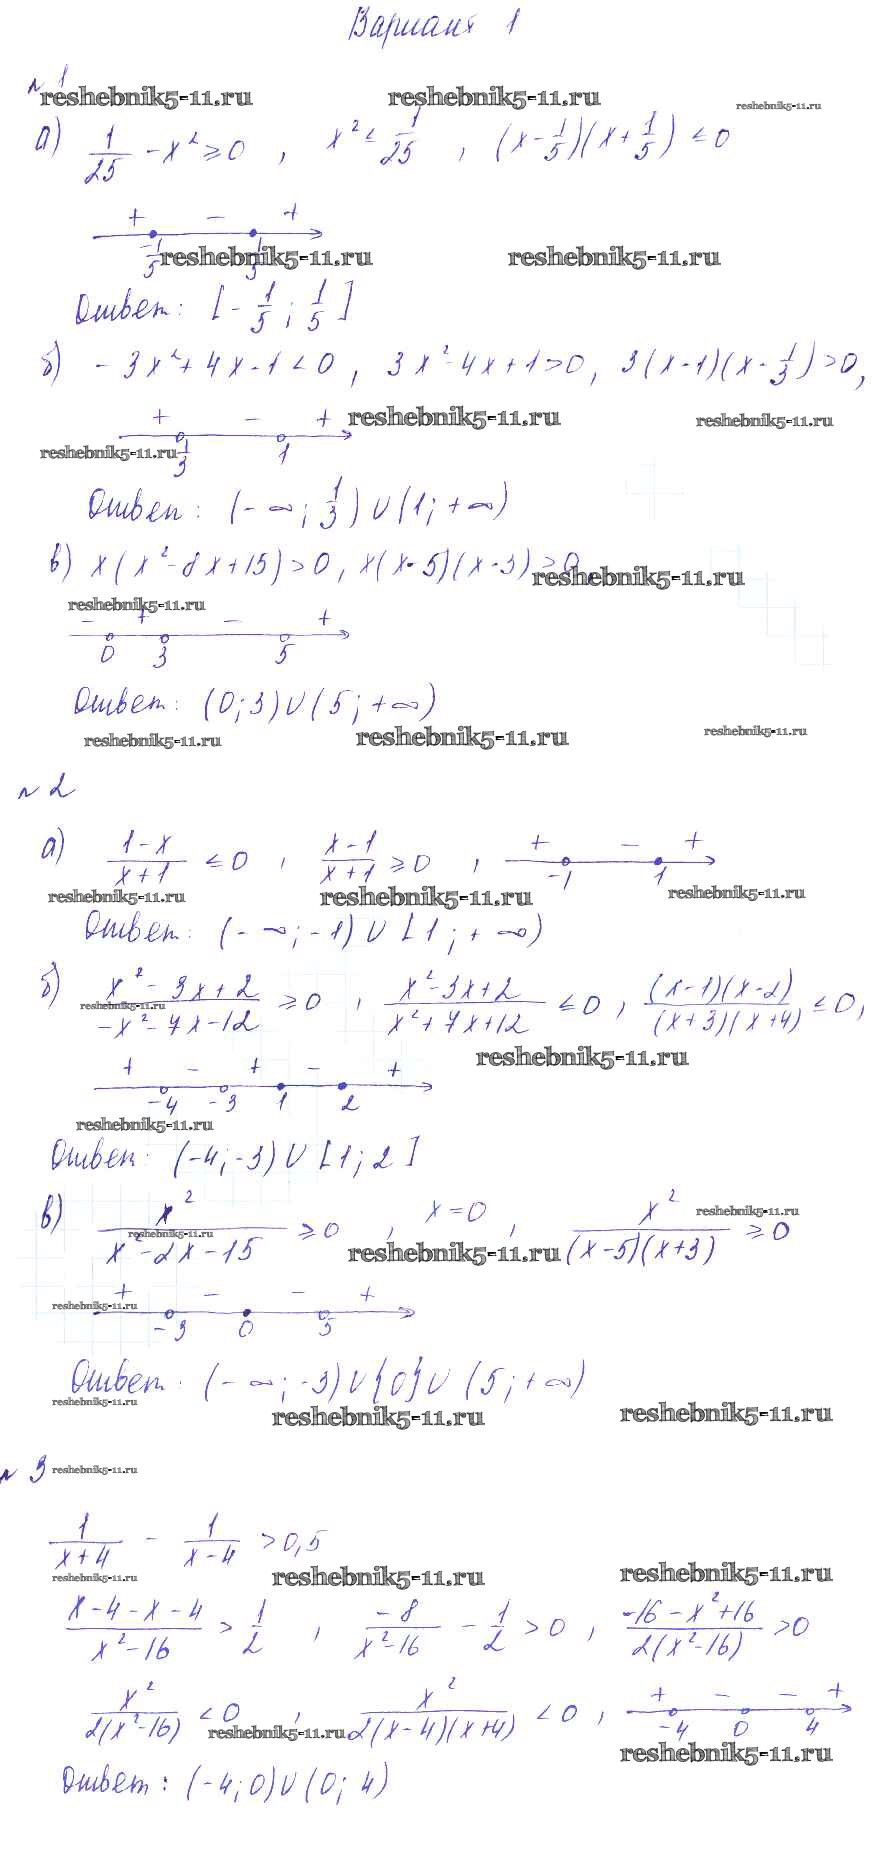 Вариант 1
№ 1
reshebnik5-11.ru reshebnik5-11.ru reshebnik5-11.ru
а) 1/25 - x² ≥ 0 , x² ≤ 1/25 , (x - 1/5)(x + 1/5) ≤ 0
+ - +
-1/5 1/5
reshebnik5-11.ru reshebnik5-11.ru
Ответ: [-1/5 ; 1/5]
б) -3x² + 4x - 1 < 0 , 3x² - 4x + 1 > 0 , 3(x-1)(x - 1/3) > 0 ,
+ - + reshebnik5-11.ru reshebnik5-11.ru
reshebnik5-11.ru 1/3 1
Ответ: (-∞ ; 1/3) ∪ (1 ; +∞)
в) x(x² - 8x + 15) > 0 , x(x-5)(x-3) > 0
reshebnik5-11.ru
reshebnik5-11.ru
- + - +
0 3 5
Ответ: (0 ; 3) ∪ (5 ; +∞)
reshebnik5-11.ru reshebnik5-11.ru reshebnik5-11.ru
№ 2
а) (1-x)/(x+1) ≤ 0 , (x-1)/(x+1) ≥ 0 , + - +
-1 1
reshebnik5-11.ru reshebnik5-11.ru reshebnik5-11.ru
Ответ: (-∞ ; -1) ∪ [1 ; +∞)
б) (x² - 3x + 2)/(-x² - 7x - 12) ≥ 0 , (x² - 3x + 2)/(x² + 7x + 12) ≤ 0 , (x-1)(x-2)/(x+3)(x+4) ≤ 0 ,
reshebnik5-11.ru
reshebnik5-11.ru
+ - + - +
-4 -3 1 2
reshebnik5-11.ru
Ответ: (-4 ; -3) ∪ [1 ; 2]
в) x²/(x² - 2x - 15) ≥ 0 , x = 0 , x²/(x-5)(x+3) ≥ 0
reshebnik5-11.ru reshebnik5-11.ru reshebnik5-11.ru
+ - - +
reshebnik5-11.ru
-3 0 5
Ответ: (-∞ ; -3) ∪ {0} ∪ (5 ; +∞)
reshebnik5-11.ru reshebnik5-11.ru reshebnik5-11.ru
№ 3 reshebnik5-11.ru
1/(x+4) - 1/(x-4) > 0,5
reshebnik5-11.ru reshebnik5-11.ru reshebnik5-11.ru
(x-4-x-4)/(x²-16) > 1/2 , -8/(x²-16) - 1/2 > 0 , (-16-x²+16)/2(x²-16) > 0
x²/2(x²-16) < 0 , x²/2(x-4)(x+4) < 0 , + - - +
-4 0 4
reshebnik5-11.ru reshebnik5-11.ru
Ответ: (-4 ; 0) ∪ (0 ; 4)